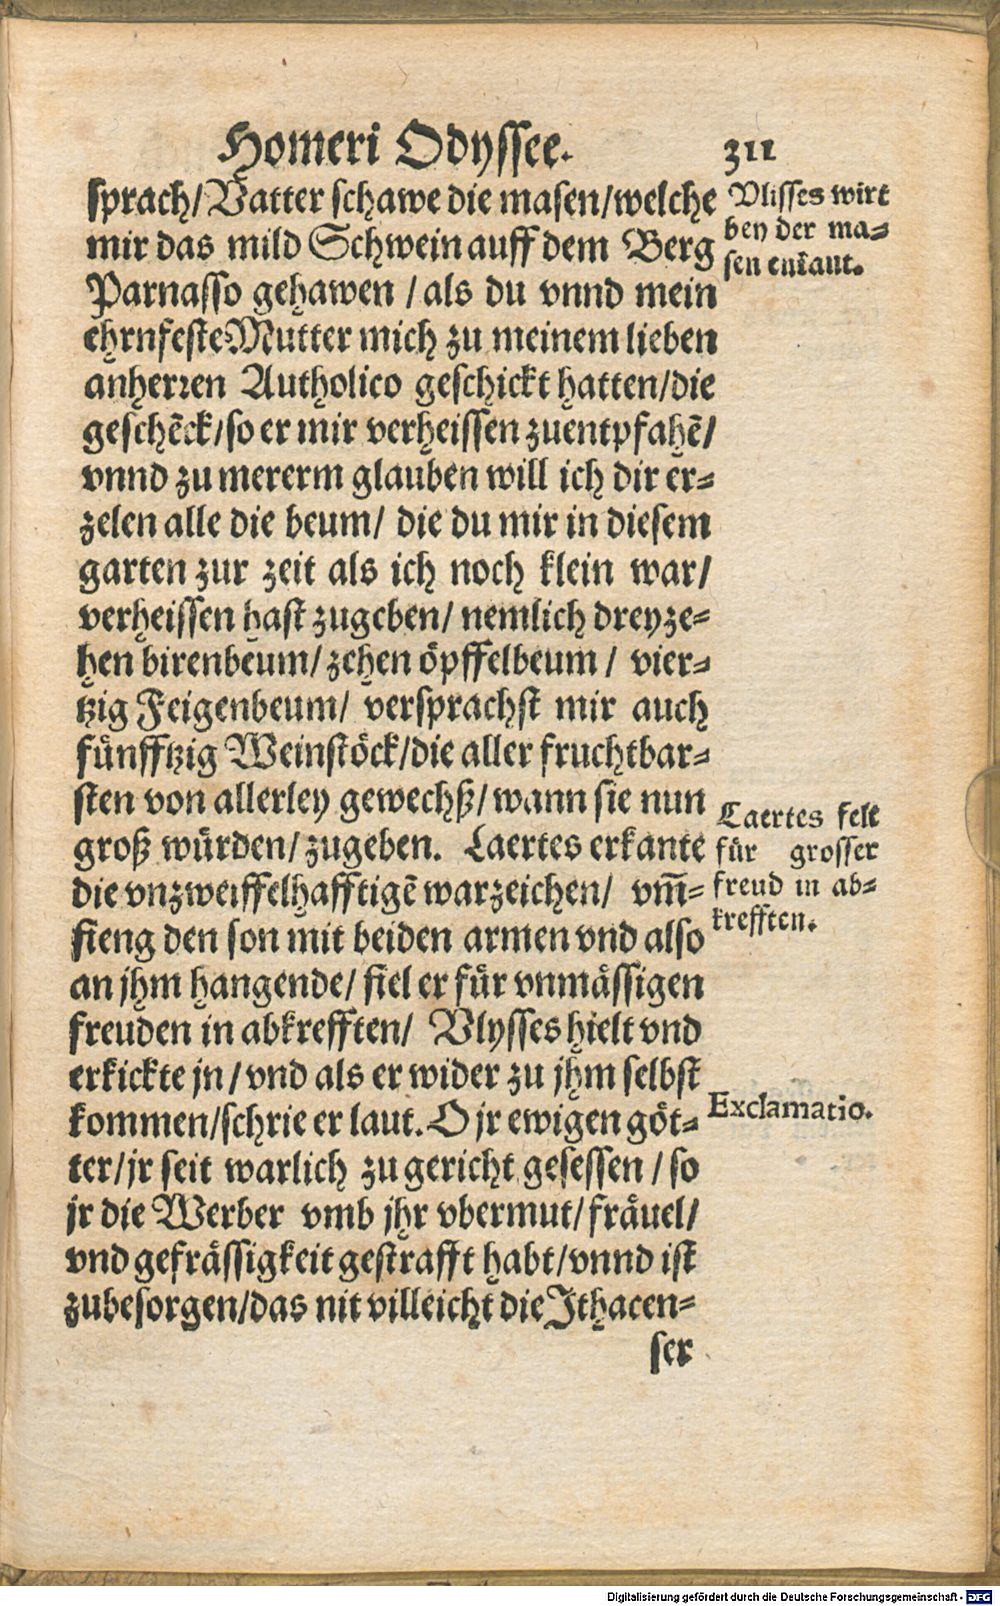 Homeri Odyssee. 311
sprach/ Vatter schawe die masen/welche
mir das mild Schwein auff dem Berg
Parnasso gehawen / als du vnnd mein
ehrnfeste Mutter mich zu meinem lieben
anherren Autholico geschickt hatten/die
geschẽck/so er mir verheissen zuentpfahẽ/
vnnd zu mererm glauben will ich dir er-
zelen alle die beum/ die du mir in diesem
garten zur zeit als ich noch klein war/
verheissen hast zugeben/ nemlich dreyze-
hen birenbeum/ zehen öpffelbeum / vier-
tzig Feigenbeum/ versprachst mir auch
fünfftzig Weinstöck/die aller fruchtbar-
sten von allerley gewechß/ wann sie nun
groß würden/ zugeben. Laertes erkante
die vnzweiffelhafftigẽ warzeichen/ vm̃-
fieng den son mit beiden armen vnd also
an jhm hangende/ fiel er für vnmässigen
freuden in abkrefften/ Vlysses hielt vnd
erkickte jn / vnd als er wider zu jhm selbst
kommen/schrie er laut. O jr ewigen göt-
ter/jr seit warlich zu gericht gesessen / so
jr die Werber vmb jhr vbermut/ fräuel/
vnd gefrässigkeit gestrafft habt/vnnd ist
zubesorgen/das nit villeicht die Ithacen-
ser
Vlisses wirt
bey der ma-
sen
Laertes felt
für grosser
freud in ab-
krefften.
Exclamatio.
Digitalisierung gefördert durch die Deutsche Forschungsgemeinschaft - DFG